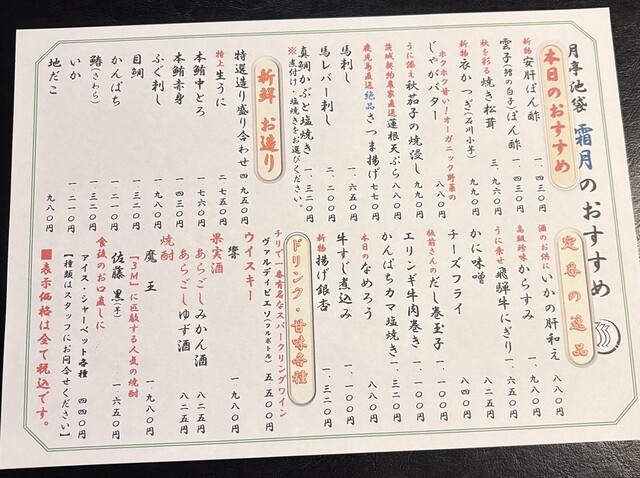 月亭池袋 霜月のおすすめ
本日のおすすめ
新物 安肝ぽん酢 一、四三〇円
雲子(鱈の白子)ぽん酢 一、四三〇円
秋を彩る 焼き松茸 三、九六〇円
新物 衣かつぎ(石川小芋) 九九〇円
ホクホク甘い!オーガニック野菜の
じゃがバター 八八〇円
うに添え 秋茄子の焼浸し 九九〇円
茨城契約農家直送 蓮根天ぷら 八八〇円
鹿児島直送 絶品 さつま揚げ 七七〇円
馬刺し 一、六五〇円
馬レバー刺し 二、二〇〇円
真鯛かぶと塩焼き 一、三二〇円
※煮付け・塩焼きをお選びください。
新鮮 お造り
特選造り盛り合わせ 四、九五〇円
特上 生うに 二、七五〇円
本鮪中とろ 一、七六〇円
本鮪赤身 一、四三〇円
ふぐ刺し 一、九八〇円
目鯛 一、三二〇円
かんぱち 一、二一〇円
鰆(さわら) 一、三二〇円
いか 一、二一〇円
地だこ 九八〇円
定番の逸品
酒のお供に いかの肝和え 八八〇円
高級珍味 からすみ 一、九八〇円
うに乗せ 飛騨牛にぎり 一、六五〇円
かに味噌 八四〇円
チーズフライ 八八〇円
板前さんの だし巻玉子 一、一〇〇円
エリンギ牛肉巻き 一、一〇〇円
かんぱちカマ塩焼き 一、三二〇円
本日の なめろう 八八〇円
牛すじ煮込み 一、一〇〇円
新物 揚げ銀杏 一、三二〇円
ドリンク・甘味各種
チリで一番有名なスパークリングワイン
ヴァルディビエソ(フルボトル) 五、五〇〇円
ウイスキー
響 一、九八〇円
果実酒
あらごしみかん酒 八二五円
あらごしゆず酒 八二五円
焼酎
魔王 一、九八〇円
「3M」に匹敵する人気の焼酎
佐藤 黒(芋) 一、六五〇円
食後のお口直しに
アイス・シャーベット各種 四四〇円
【種類はスタッフにお問合せください】
■表示価格は全て税込です。